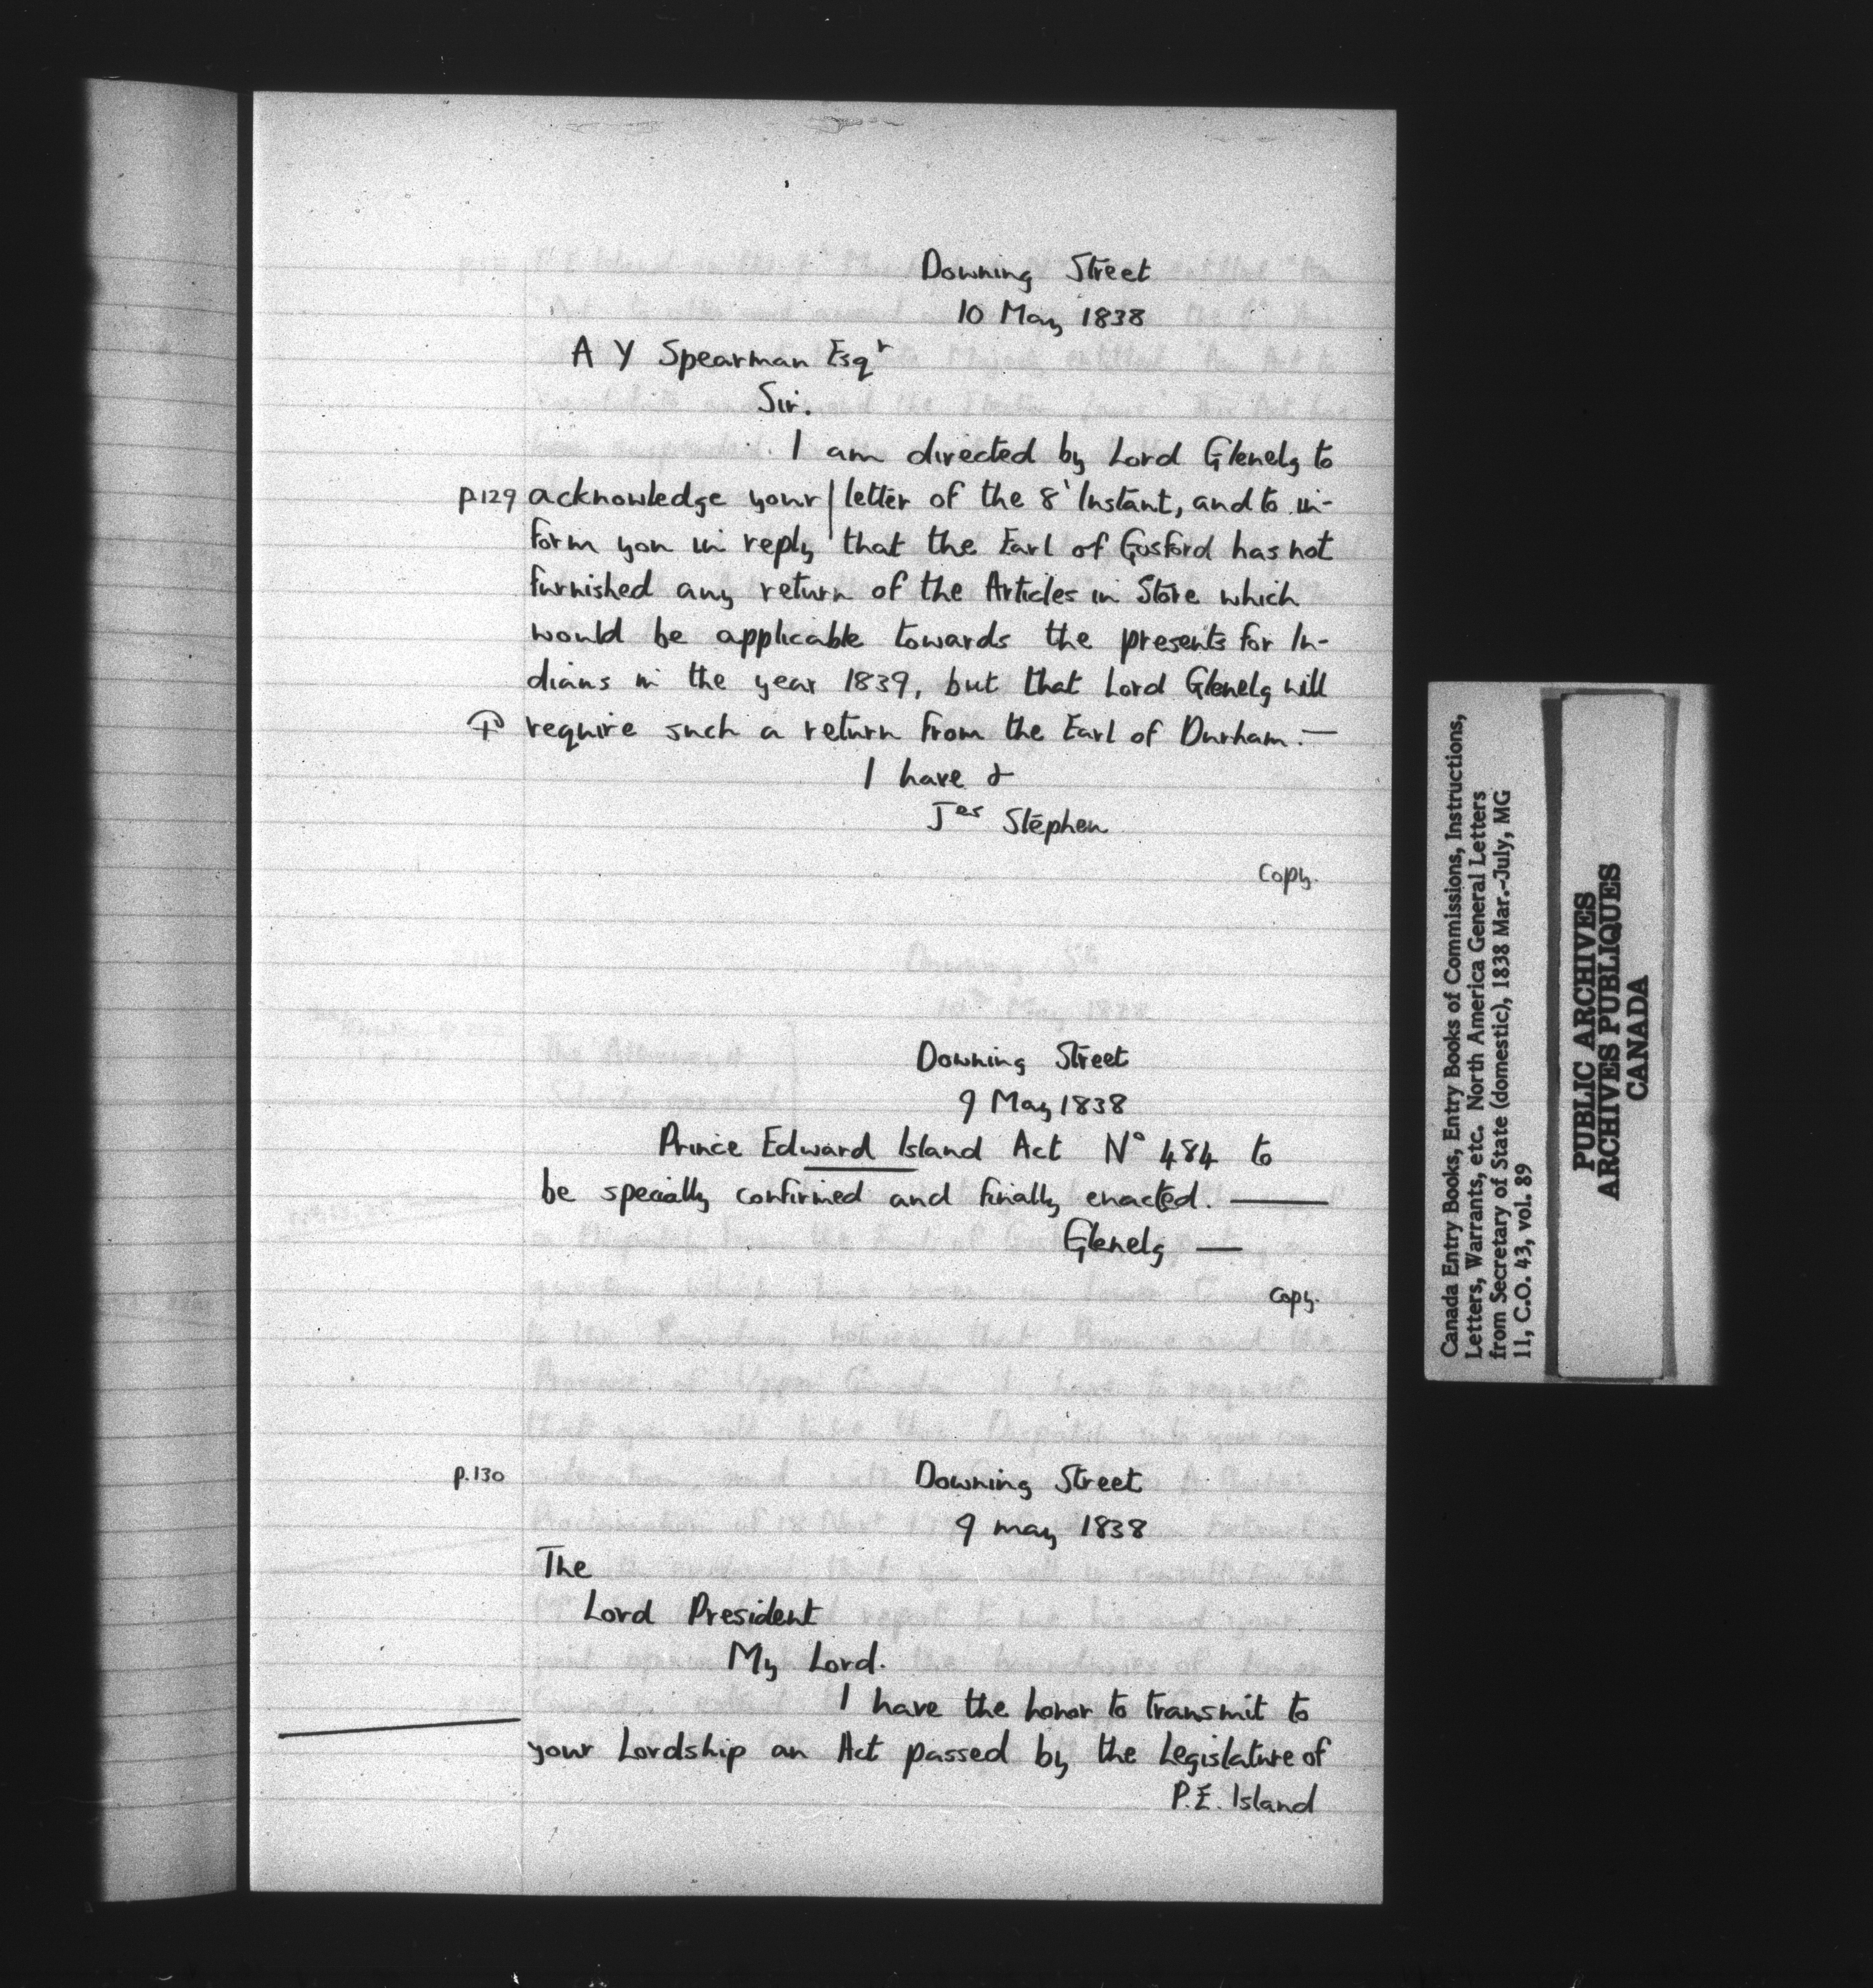 Downing Street
10 May 1838
A Y Spearman Esqr
Sir.
I am directed by Lord Glenelg to
p.129 acknowledge your | letter of the 8' Instant, and to in-
form you in reply that the Earl of Gosford has not
furnished any return of the Articles in Store which
would be applicable towards the presents for In-
dians in the year 1839, but that Lord Glenelg will
require such a return from the Earl of Durham.—
I have &
Jes Stephen
Copy.
Downing Street
9 May 1838
Prince Edward Island Act No 484 to
be specially confirmed and finally enacted. —
Glenelg —
Copy.
p.130
Downing Street
9 may 1838
The
Lord President
My Lord.
I have the honor to transmit to
your Lordship an Act passed by the Legislature of
P.E. Island
Canada Entry Books, Entry Books of Commissions, Instructions,
Letters, Warrants, etc. North America General Letters
from Secretary of State (domestic), 1838 Mar.-July, MG
11, C.O. 43, vol. 89
PUBLIC ARCHIVES
ARCHIVES PUBLIQUES
CANADA